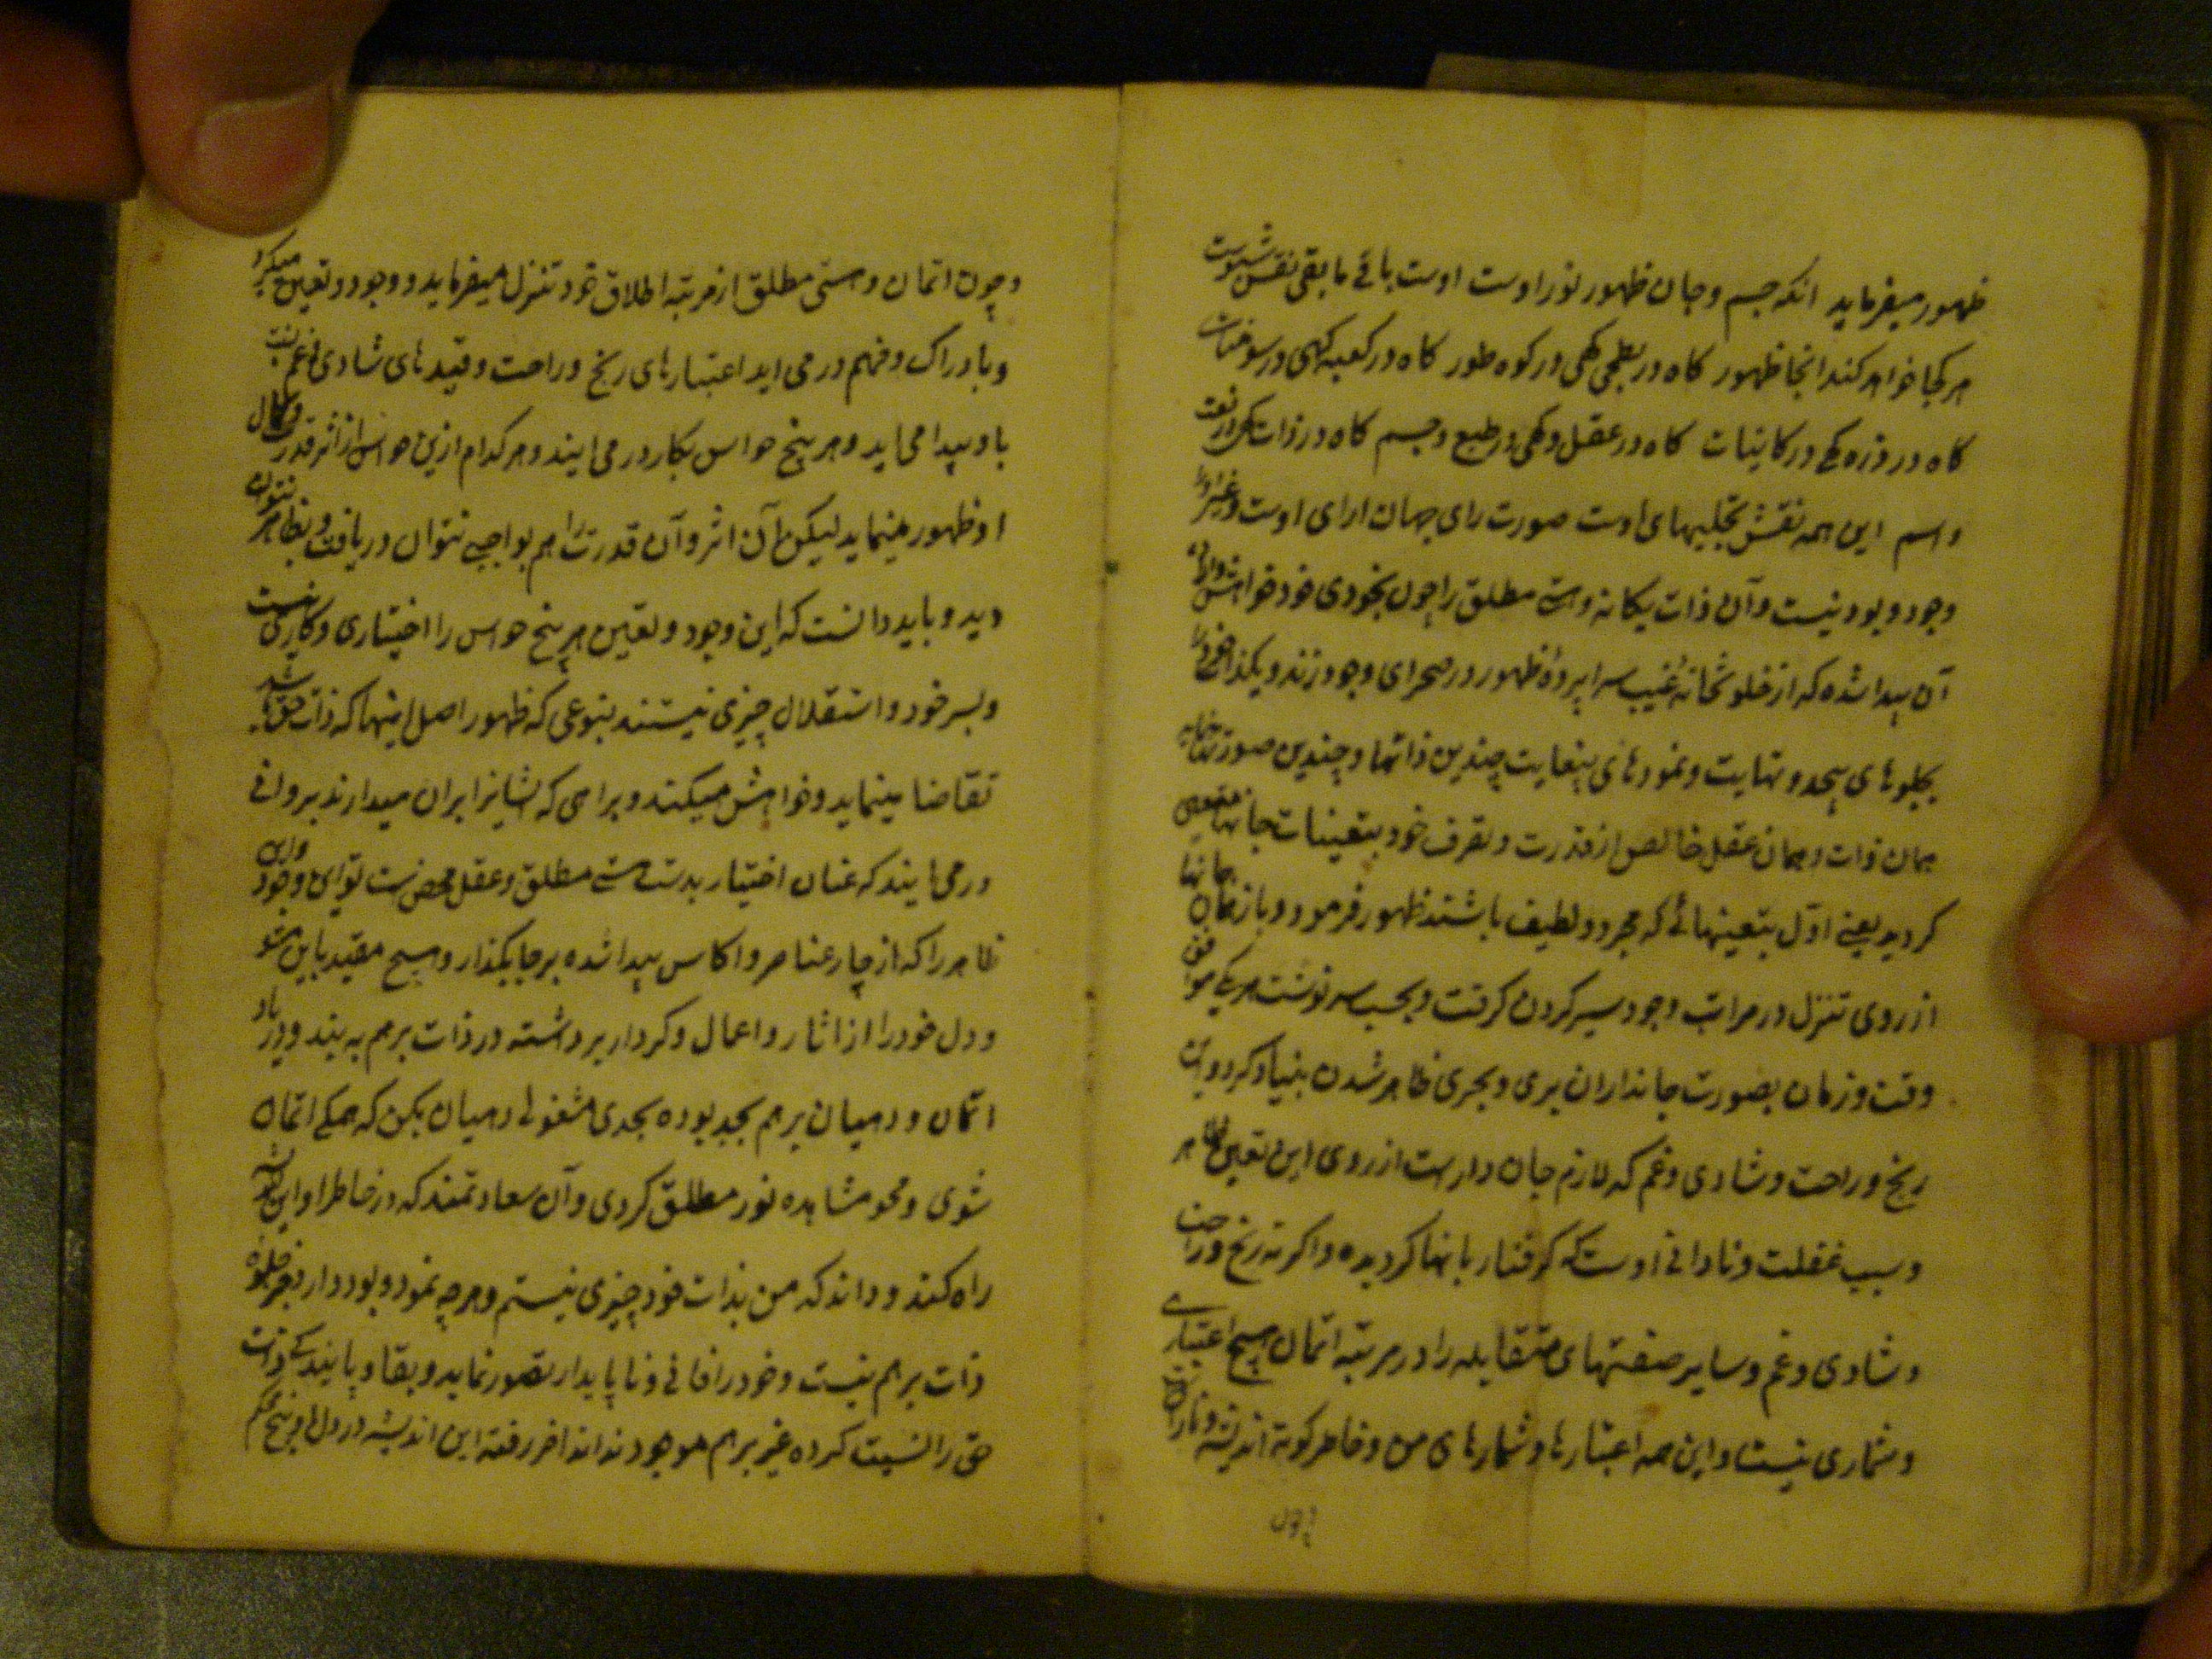 ظهور میفرماید انکه جسم و جان ظهور نور اوست اوست باقے مابقی نقش
هر کجا خواهد کند انجا ظهور کاه در بطحی کهی در کوه طور کاه در کعبه کهی در سومنات
کاه در ذره کهے در کاینات کاه در عقل و کهی در طبع و جسم کاه در ذات
و اسم این همه نقش تجلیهای اوست صورت رای جهان ارای اوست و غیر او را
وجود و بود نیست و آن ذات یکانه و هستے مطلق را چون بخودی خود خواهش
آن پیدا شده که از خلوتخانه غیب سراپرده ظهور در صحرای وجود زند و یکذات خود را
بجلوهای بیحد و نهایت و نمودهای بیغایت چندین ذاتها و چندین صورتها نماید
همان ذات و همان عقل خالص از قدرت و تصرف خود بتعینات جانها
کردید یعنے اول بتعینهائے که مجرد و لطیف باشند ظهور فرمود و باز همان جانها
از روی تنزل در مراتب وجود سیر کردن کرفت و بحسب سرنوشت هر یکے موافق
وقت و زمان بصورت جانداران بری و بحری ظاهر شدن بنیاد کرد و این
رنج و راحت و شادی و غم که لازم جان دارست از روی این تعین ظاهر
و سبب غفلت و نادانے اوست که کرفتار بانها کردیده و اکر نه رنج و راحت
و شادی و غم و سایر صفتهای متقابله را در مرتبه اتمان هیچ اعتبارے
و شماری نیست و این همه اعتبارها و شمارهای من و خاطر کوته اندیشه
چون
و چون اتمان و هستی مطلق از مرتبه اطلاق خود تنزل میفرماید و وجود و تعین میکیرد
و بادراک و فهم در می اید اعتبارهای رنج و راحت و قیدهای شادی و غم نسبت
باو پیدا می اید و هر پنج حواس بکار در می ایند و هر کدام ازین حواس از اثر قدرت و کمال
او ظهور مینماید لیکن آن اثر و آن قدرت را هم بواجبے نتوان دریافت و بظاهر نتوان
دید و باید دانست که این وجود و تعین هر پنج حواس را اختیاری و کاری نیست
و بسر خود و استقلال چیزی نیستند بنوعی که ظهور اصل اینها که ذات حق باشد
تقاضا مینماید و خواهش میکند و براهی که ایشانرا بران میدارند بروانے
در می ایند که عنان اختیار بدست هستے مطلق و عقل محض ست تو این وجود
ظاهر را که از چار عناصر و اکاس پیدا شده بر جا بکذار و هیچ مقید باین مشو
و دل خود را از اثار و اعمال و کردار برداشته در ذات برهم به بند و در یاد
اتمان و دهیان برهم بجد بوده بجدی مشغولے دهیان بکن که همکے اتمان
شوی و محو مشاهده نور مطلق کردی و آن سعادتمند که در خاطر او این
راه کند و داند که من بذات خود چیزی نیستم و هر چه نمود و بود دارد بغیر جلوه
ذات برهم نیست و خود را فانے و ناپایدار تصور نماید و بقا و پایندکے ذات
حق را نسبت کرده غیر برهم موجود نداند اخر رفته این اندیشه در دل او بیخ محکم